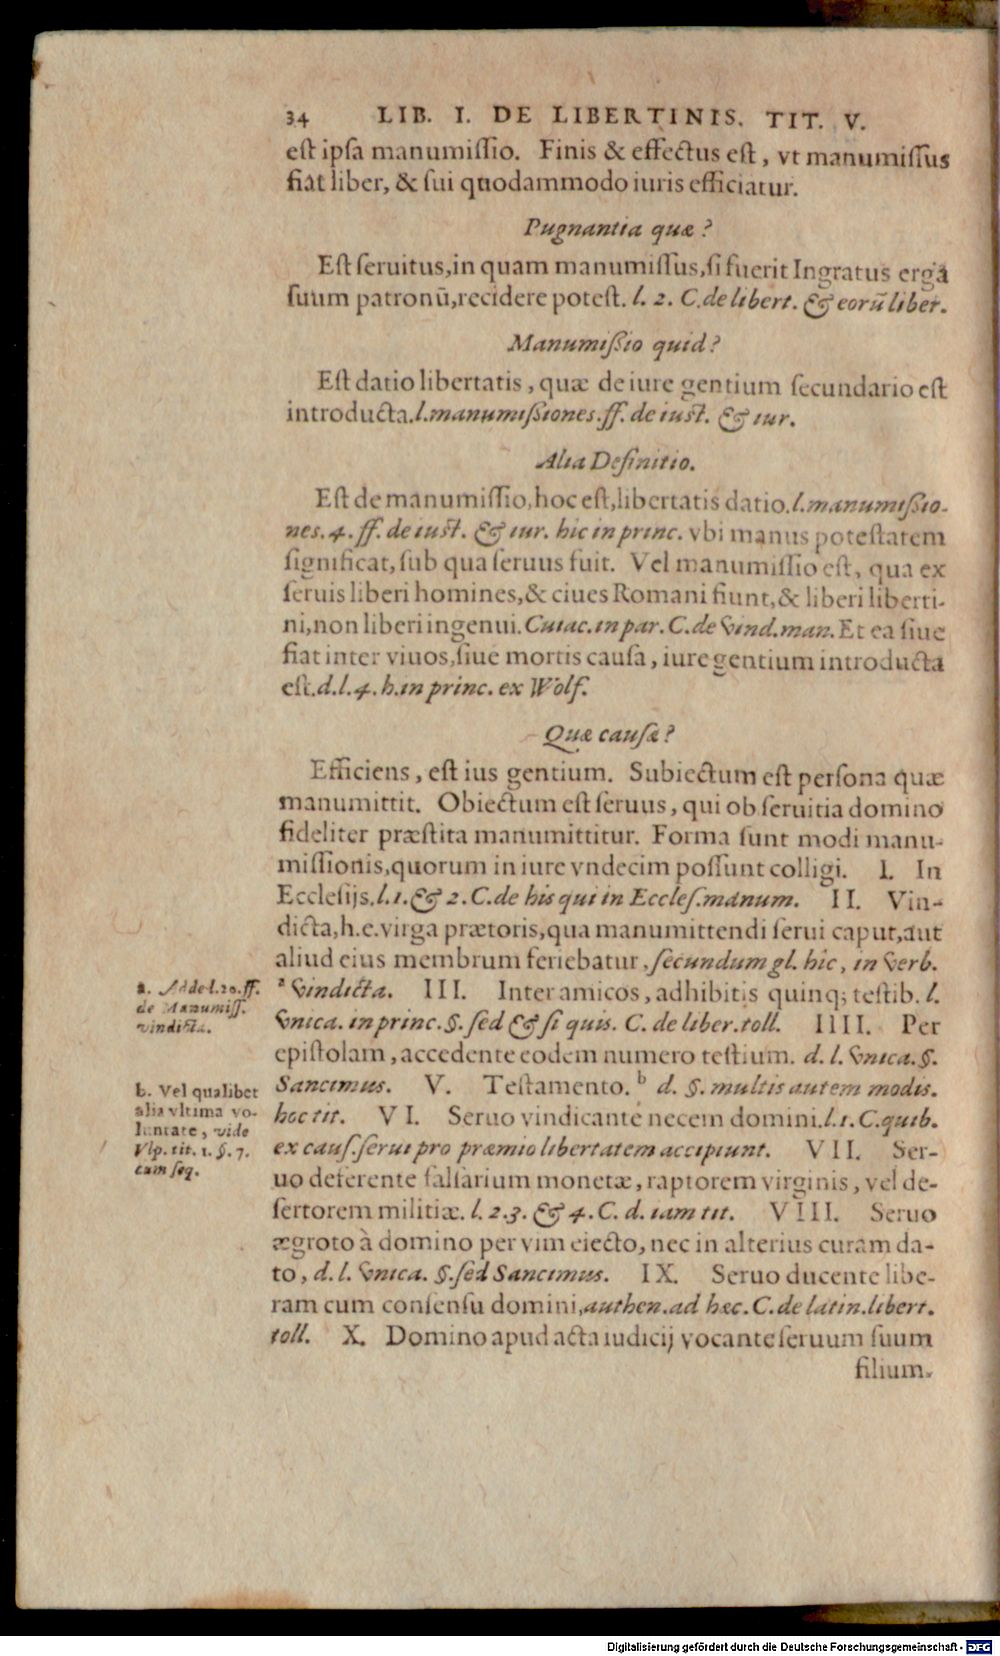 34 LIB. I. DE LIBERTINIS. TIT. V.
est ipsa manumissio. Finis & effectus est, vt manumissus
fiat liber, & sui quodammodo iuris efficiatur.
Pugnantia quæ?
Est seruitus, in quam manumissus, si fuerit Ingratus erga
suum patronũ, recidere potest. l. 2. C. de libert. & eorũ liber.
Manumißio quid?
Est datio libertatis, quæ de iure gentium secundario est
introducta. l. manumißiones. ff. de iust. & iur.
Alia Definitio.
Est de manumissio, hoc est, libertatis datio. l. manumißio-
nes. 4. ff. de iust. & iur. hic in princ. vbi manus potestatem
significat, sub qua seruus fuit. Vel manumissio est, qua ex
seruis liberi homines, & ciues Romani fiunt, & liberi liberti-
ni, non liberi ingenui. Cuiac. in par. C. de vind. man. Et ea siue
fiat inter viuos, siue mortis causa, iure gentium introducta
est. d. l. 4. h. in princ. ex Wolf.
Quæ causæ?
Efficiens, est ius gentium. Subiectum est persona quæ
manumittit. Obiectum est seruus, qui ob seruitia domino
fideliter præstita manumittitur. Forma sunt modi manu-
missionis, quorum in iure vndecim possunt colligi. I. In
Ecclesijs. l. 1. & 2. C. de his qui in Eccles. manum. II. Vin-
dicta, h. e. virga prætoris, qua manumittendi serui caput, aut
aliud eius membrum feriebatur, secundum gl. hic, in verb.
a vindicta. III. Inter amicos, adhibitis quinq; testib. l.
vnica. in princ. §. sed & si quis. C. de liber. toll. IIII. Per
epistolam, accedente eodem numero testium. d. l. vnica. §.
Sancimus. V. Testamento. b d. §. multis autem modis.
hoc tit. VI. Seruo vindicante necem domini. l. 1. C. quib.
ex caus. serui pro præmio libertatem accipiunt. VII. Ser-
uo deferente falsarium monetæ, raptorem virginis, vel de-
sertorem militiæ. l. 2. 3. & 4. C. d. iam tit. VIII. Seruo
ægroto à domino per vim eiecto, nec in alterius curam da-
to, d. l. vnica. §. sed Sancimus. IX. Seruo ducente libe-
ram cum consensu domini, authen. ad hæc. C. de latin. libert.
toll. X. Domino apud acta iudicij vocante seruum suum
filium.
a. Adde l. 20. ff.
de Manumiss.
vindicta.
b. Vel qualibet
alia vltima vo-
luntate, vide
Vlp. tit. 1. §. 7.
cum seq.
Digitalisierung gefördert durch die Deutsche Forschungsgemeinschaft - DFG